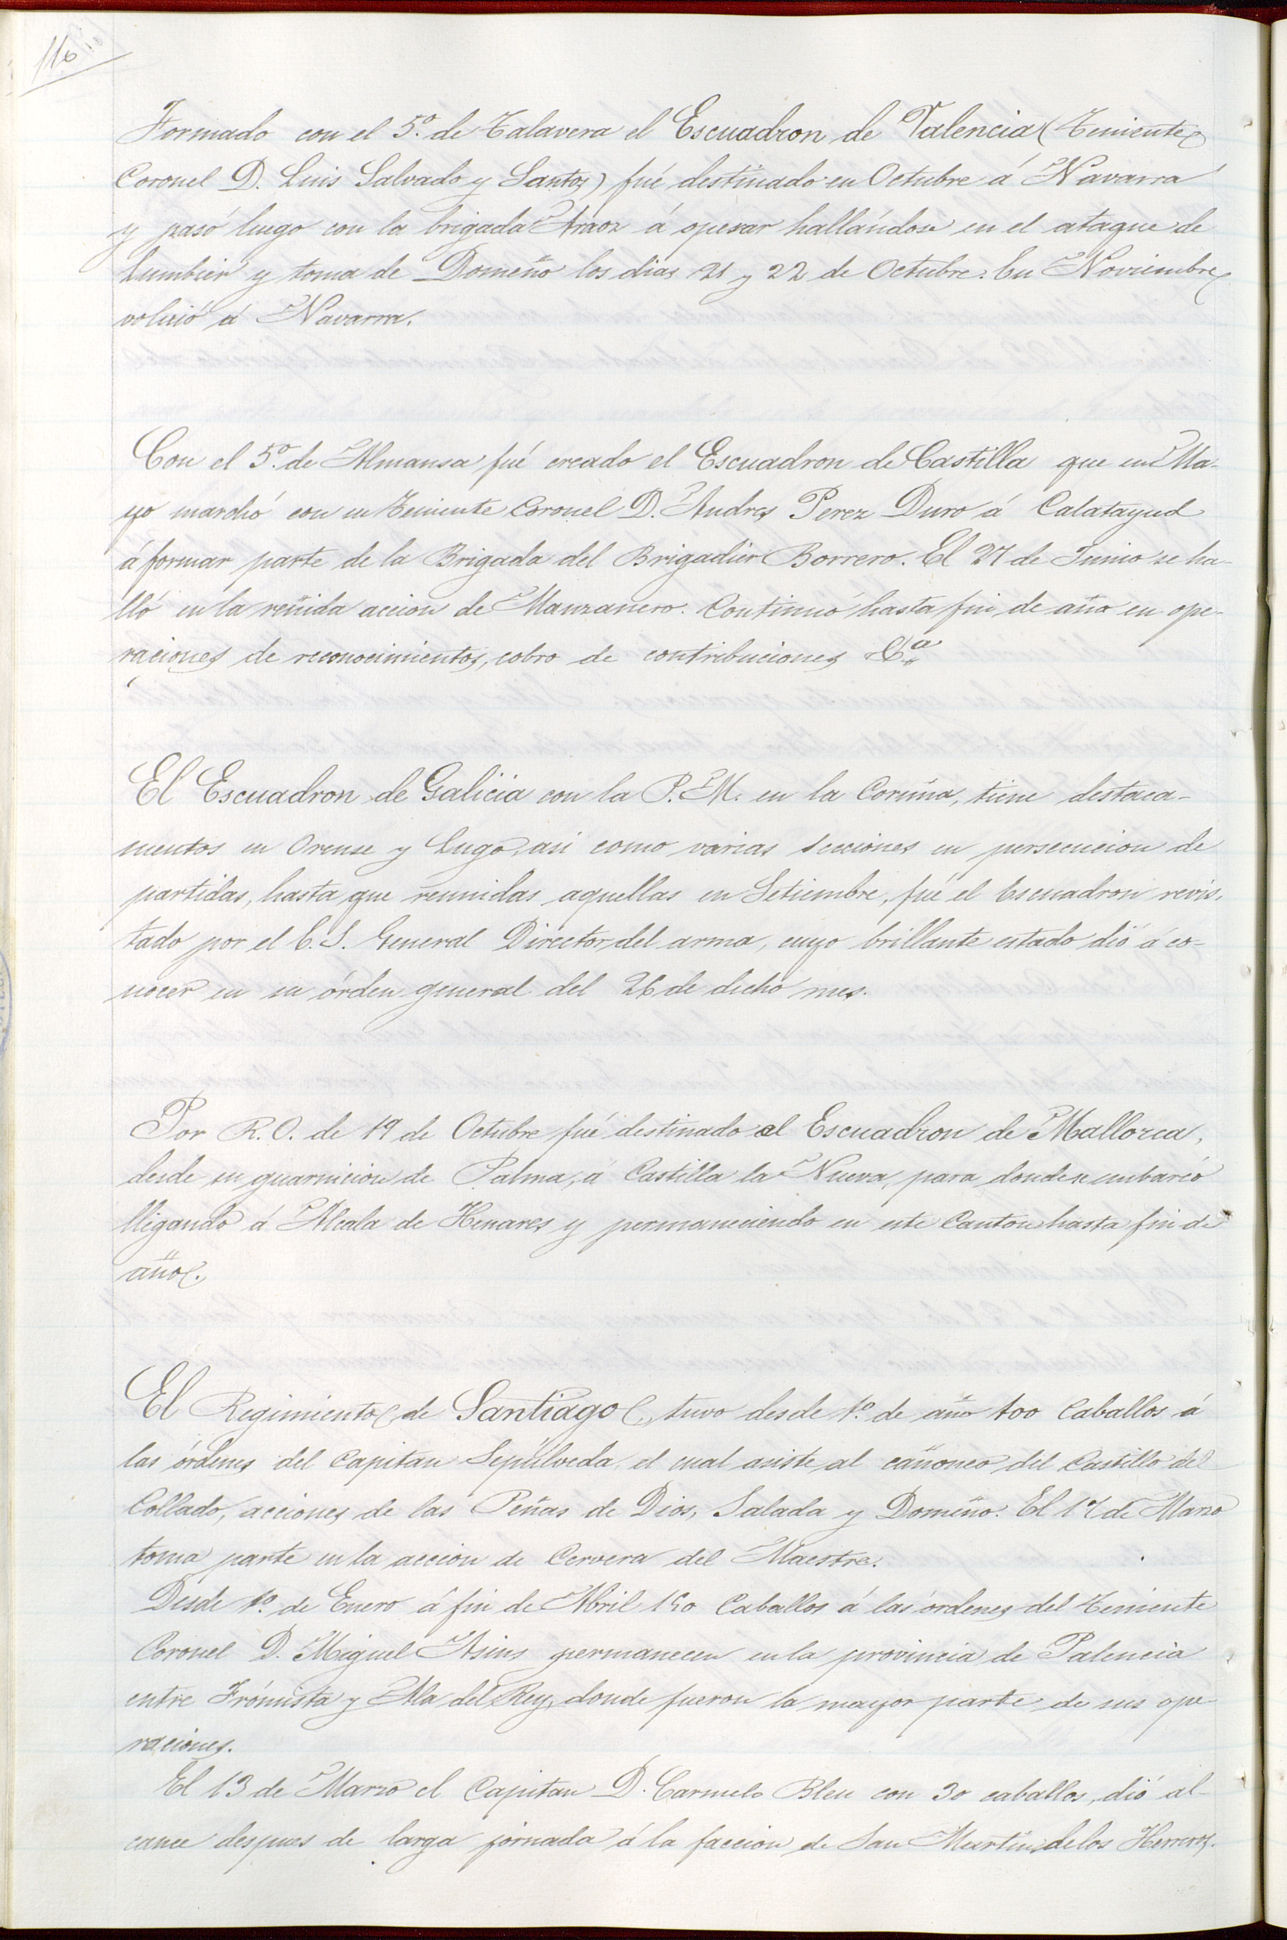 116
Formado con el 5º de Talavera el Escuadron de Valencia (Teniente
Coronel D. Luis Salvado y Santos) fué destinado en Octubre á Navarra
y pasó luego con la brigada Araoz á operar hallándose en el ataque de
Lumbier y toma de Domeño los dias 21 y 22 de Octubre. En Noviembre
volvió á Navarra.
Con el 5º de Almansa fué creado el Escuadron de Castilla que en Ma-
yo marchó con su Teniente Coronel D. Andres Perez Duro á Calatayud
á formar parte de la Brigada del Brigadier Borrero. El 27 de Junio se ha-
lló en la reñida accion de Manzanero. Continuó hasta fin de año en ope-
raciones de reconocimientos, cobro de contribuciones &ª
El Escuadron de Galicia con la P. M. en la Coruña, tiene destaca-
mentos en Orense y Lugo, asi como varias secciones en persecucion de
partidas, hasta que reunidas aquellas en Setiembre, fué el Escuadron revis-
tado por el E. S. General Director del arma, cuyo brillante estado dió á co-
nocer en su órden general del 26 de dicho mes.
Por R. O. de 19 de Octubre fué destinado el Escuadron de Mallorca,
desde su guarnicion de Palma, á Castilla la Nueva, para donde se embarcó
llegando á Alcala de Henares y permaneciendo en este Canton hasta fin de
año.
El Regimiento de Santiago, tuvo desde 1º de año 100 Caballos á
las órdenes del Capitan Sepúlveda, el cual asiste al cañoneo del Castillo del
Collado, acciones de las Peñas de Dios, Salada y Domeño. El 17 de Marzo
toma parte en la accion de Cervera del Maestre.
Desde 1º de Enero á fin de Abril 150 Caballos á las órdenes del Teniente
Coronel D. Miguel Asins permanecen en la provincia de Palencia
entre Frómista y Alla del Rey, donde fueron la mayor parte de sus ope-
raciones.
El 13 de Marzo el Capitan D. Carmelo Bleu con 30 caballos, dió al-
cance despues de larga jornada á la faccion de San Martin de los Herreros.